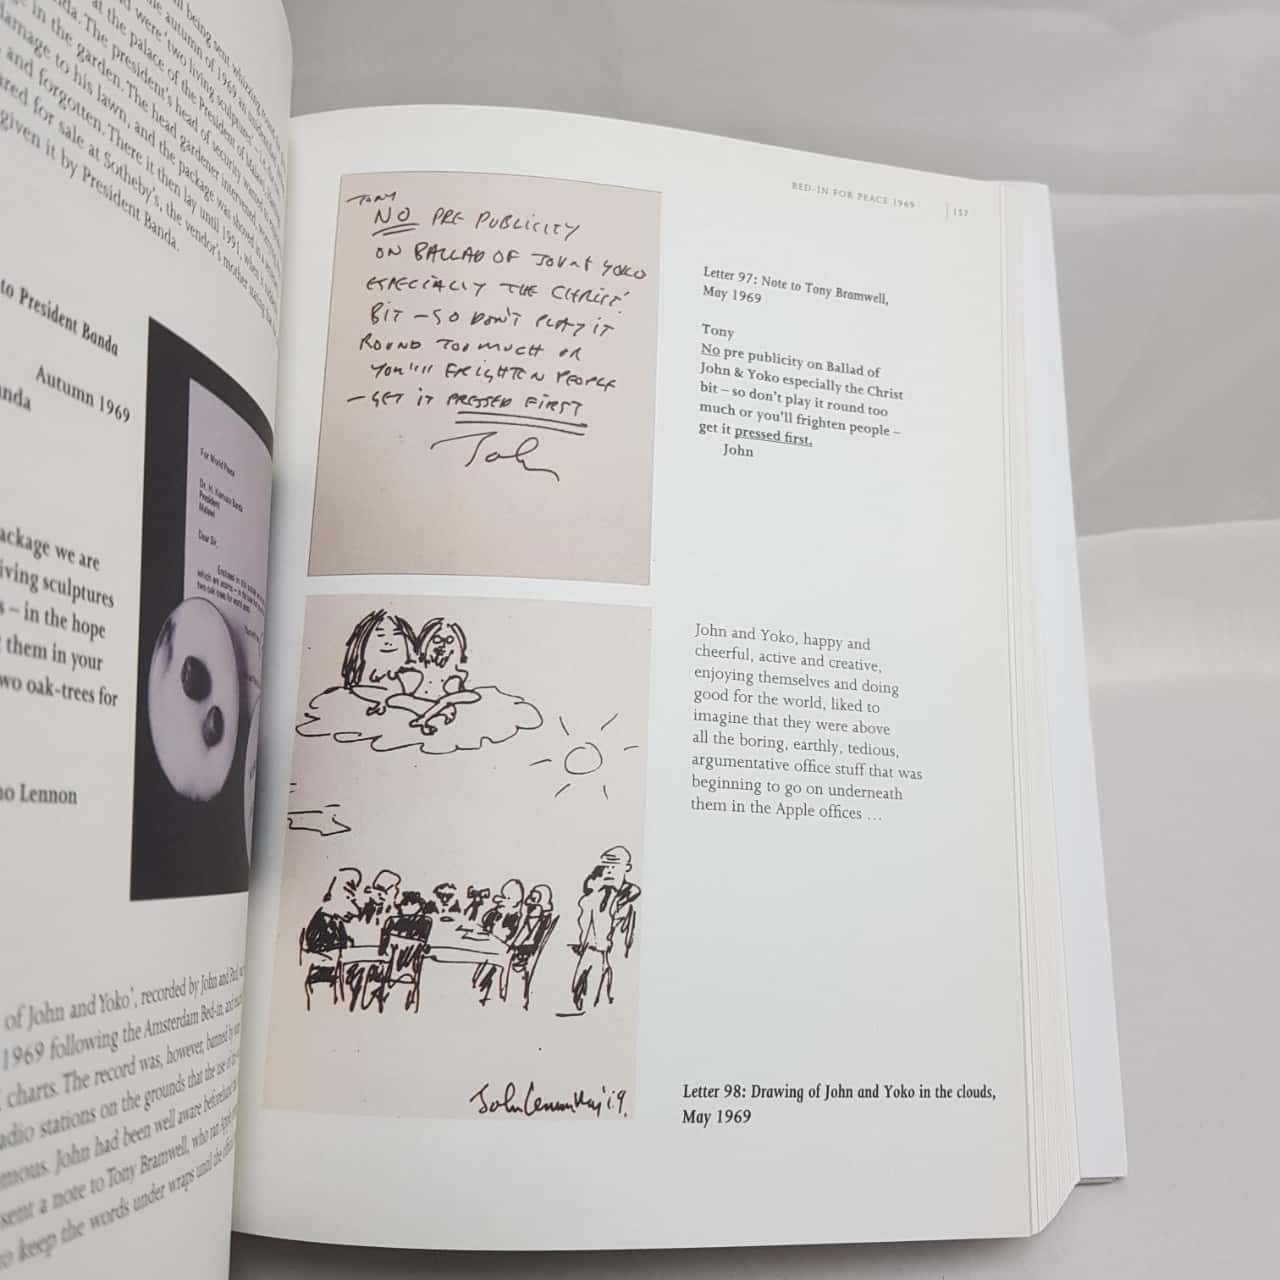 being sent whizzing
the autumn of 1969 an unidentified
were 'two living sculptures' – i.e.
at the palace of the President of Malawi
nda. The president's head of security wanted
in the garden. The head gardener intervened,
damage to his lawn, and the package was shoved in a
and forgotten. There it then lay until 1991, when it
ared for sale at Sotheby's, the vendor's mother stating
given it by President Banda.
to President Banda
Autumn 1969
nda
ackage we are
iving sculptures
s – in the hope
t them in your
wo oak-trees for
no Lennon
For World Peace
Dr. H. Kamuzu Banda
President
Malawi
Dear Sir,
Enclosed in this
which are acorns – in the
two oak trees for world peace
of John and Yoko', recorded by John and Paul
1969 following the Amsterdam Bed-in, and
charts. The record was, however, banned by
adio stations on the grounds that the use of
mous. John had been well aware beforehand
sent a note to Tony Bramwell, who ran Apple
to keep the words under wraps until the
BED-IN FOR PEACE 1969 | 157
TONY
NO PRE PUBLICITY
ON BALLAD OF JOHN & YOKO
ESPECIALLY THE CHRIST
BIT – SO DON'T PLAY IT
ROUND TOO MUCH OR
YOU'LL FRIGHTEN PEOPLE
– GET IT PRESSED FIRST
John
Letter 97: Note to Tony Bramwell,
May 1969
Tony
No pre publicity on Ballad of
John & Yoko especially the Christ
bit – so don't play it round too
much or you'll frighten people –
get it pressed first.
John
John and Yoko, happy and
cheerful, active and creative,
enjoying themselves and doing
good for the world, liked to
imagine that they were above
all the boring, earthly, tedious,
argumentative office stuff that was
beginning to go on underneath
them in the Apple offices …
John Lennon May '69.
Letter 98: Drawing of John and Yoko in the clouds,
May 1969